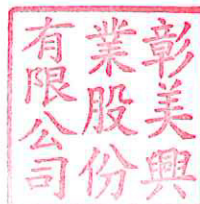 彰美興
業股份
有限公司